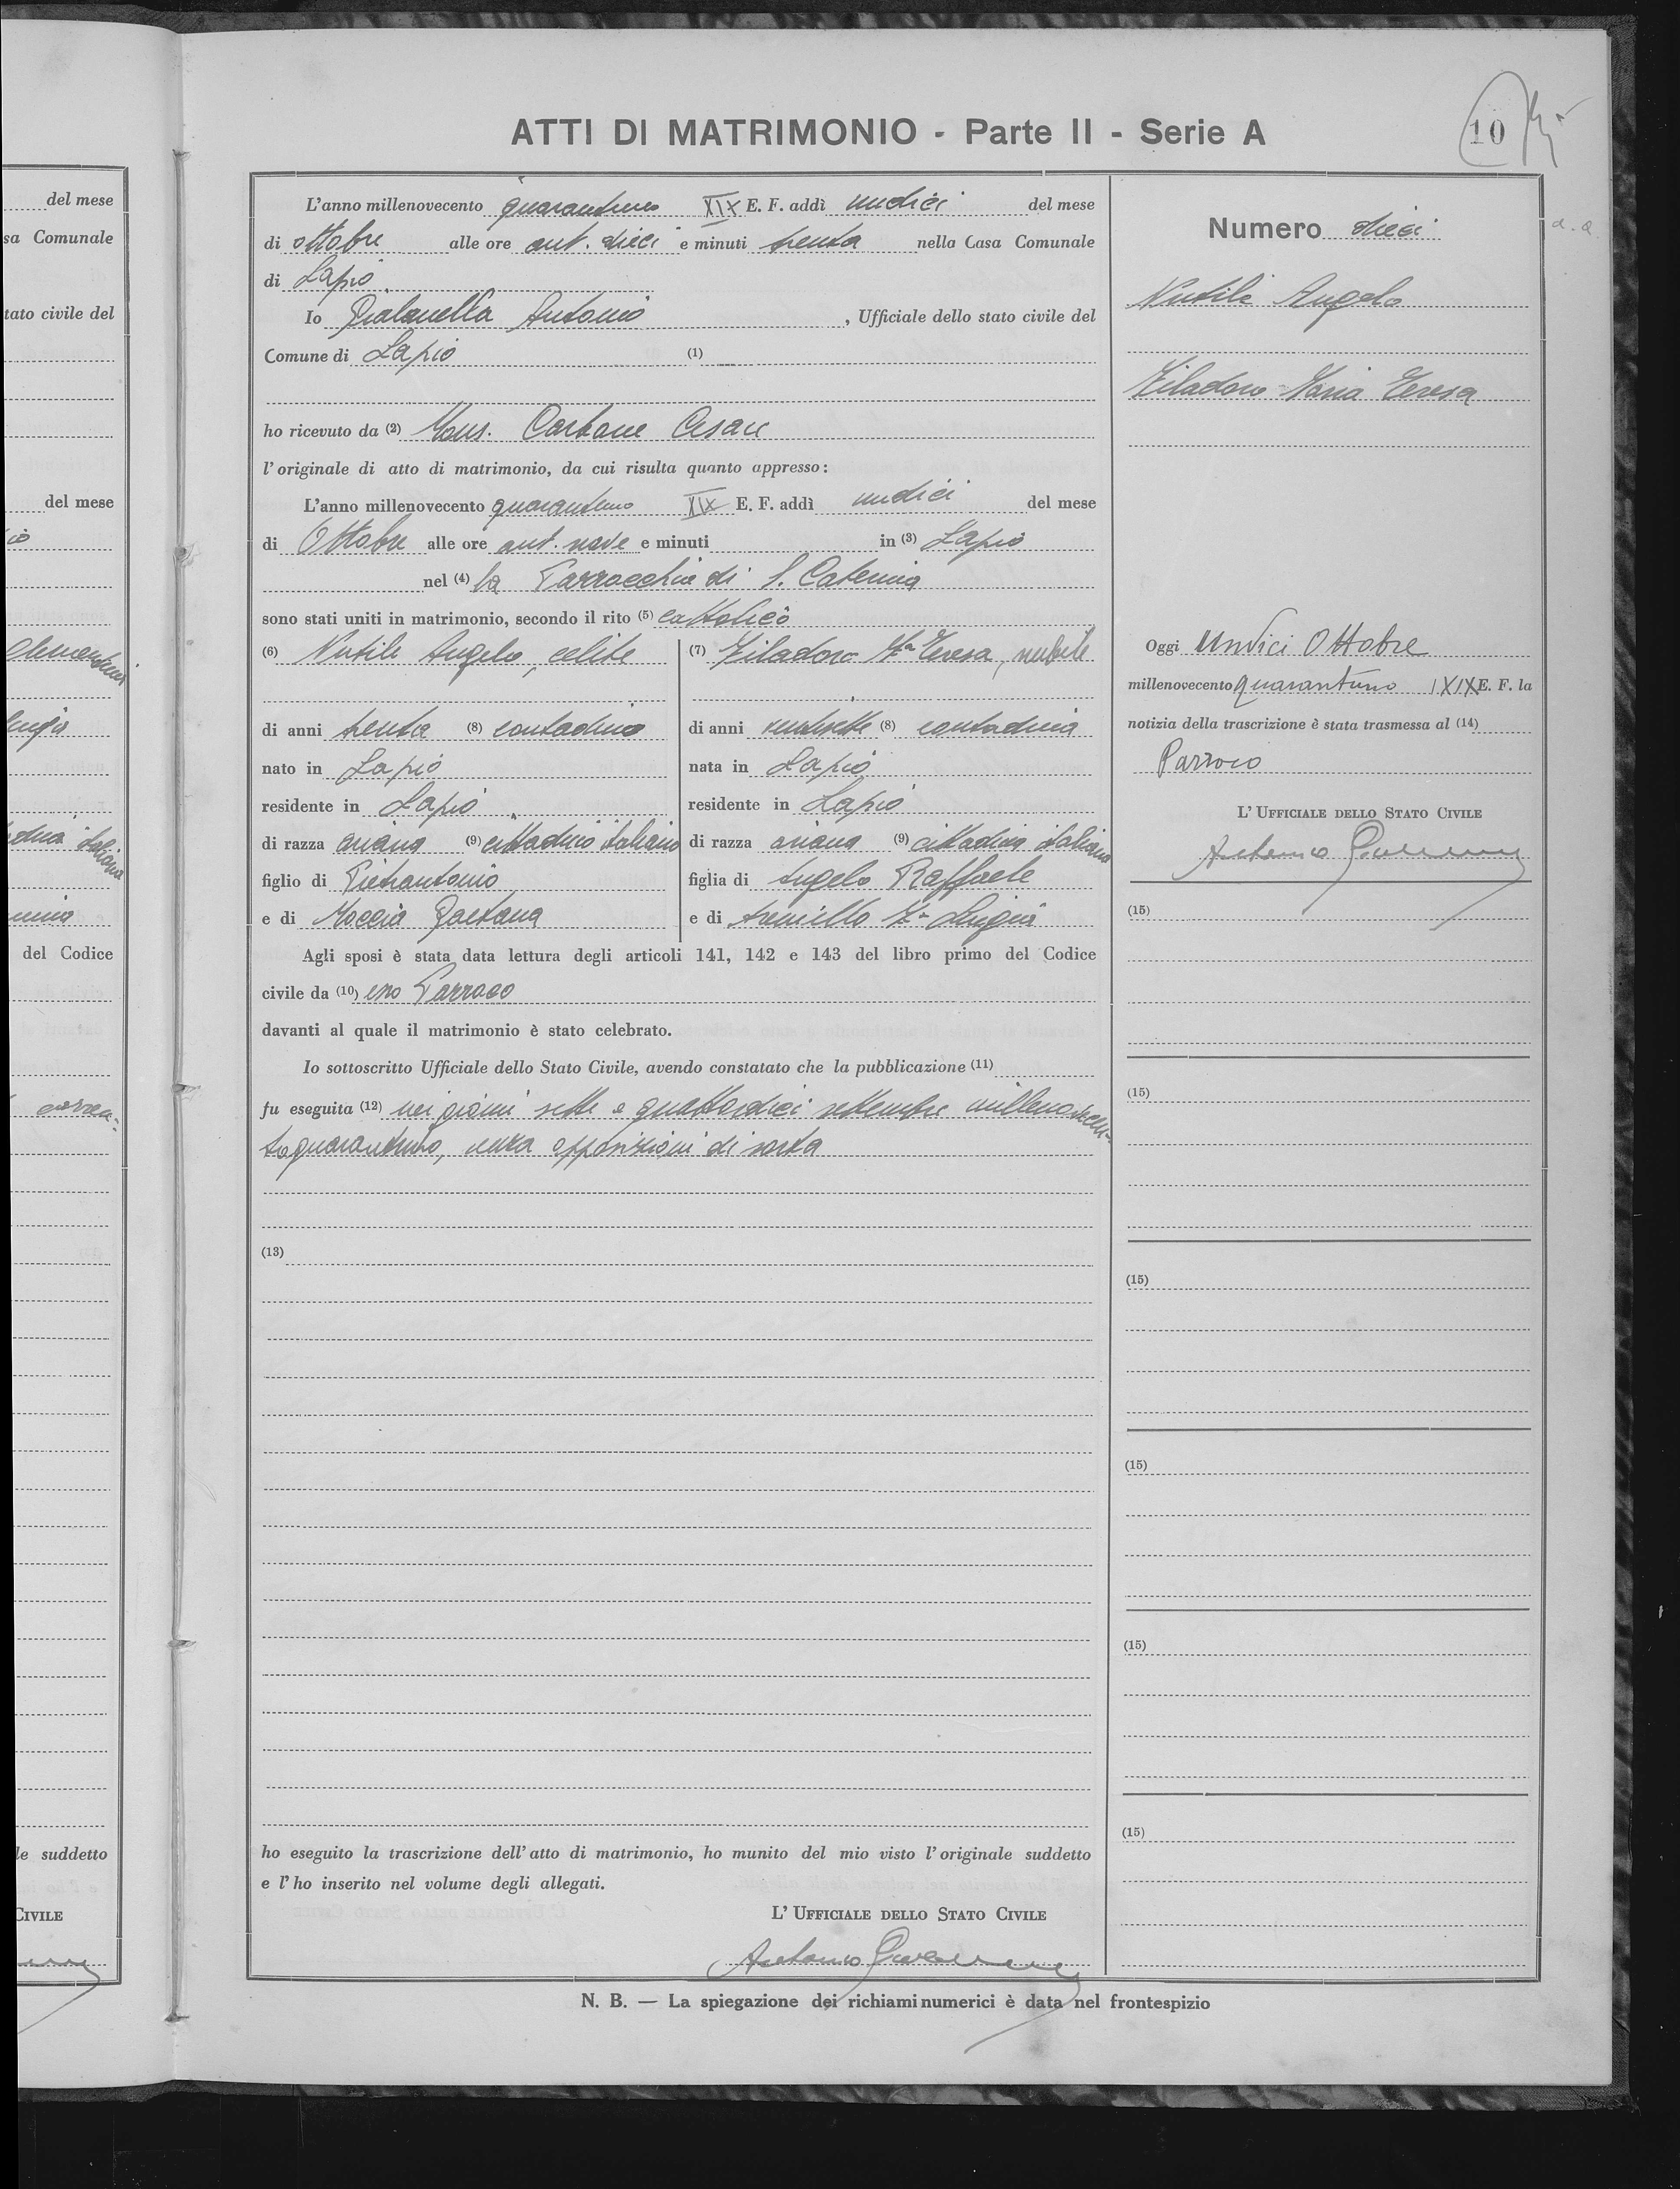 del mese
sa Comunale
tato civile del
del mese
io
del Codice
le suddetto
CIVILE
10
ATTI DI MATRIMONIO - Parte II - Serie A
L'anno millenovecento quarantuno XIX E. F. addì undici del mese
di ottobre alle ore ant. dieci e minuti trenta nella Casa Comunale
di Lapio
Io Antonio, Ufficiale dello stato civile del
Comune di Lapio (1)
ho ricevuto da (2) Mons. Carbone Cesare
l'originale di atto di matrimonio, da cui risulta quanto appresso:
L'anno millenovecento quarantuno XIX E. F. addì undici del mese
di Ottobre alle ore ant. nove e minuti in (3) Lapio
nel (4) la Parrocchia di S. Caterina
sono stati uniti in matrimonio, secondo il rito (5) cattolico
(6) Nutile Angelo, celibe
di anni trenta (8) contadino
nato in Lapio
residente in Lapio
di razza ariana (9) cittadino italiano
figlio di Pietrantonio
e di Moccia Gaetana
(7) Filadoro Ma Teresa, nubile
di anni ventisette (8) contadina
nata in Lapio
residente in Lapio
di razza ariana (9) cittadina italiana
figlia di Angelo Raffaele
e di Ma Luigia
Agli sposi è stata data lettura degli articoli 141, 142 e 143 del libro primo del Codice
civile da (10) esso Parroco
davanti al quale il matrimonio è stato celebrato.
Io sottoscritto Ufficiale dello Stato Civile, avendo constatato che la pubblicazione (11)
fu eseguita (12) nei giorni sette e quattordici settembre millenovecen-
toquarantuno, senza opposizioni di sorta
(13)
ho eseguito la trascrizione dell'atto di matrimonio, ho munito del mio visto l'originale suddetto
e l'ho inserito nel volume degli allegati.
L'UFFICIALE DELLO STATO CIVILE
Antonio
N. B. — La spiegazione dei richiami numerici è data nel frontespizio
Numero dieci
Nutile Angelo
Filadoro Maria Teresa
Oggi Undici Ottobre
millenovecento quarantuno XIX E. F. la
notizia della trascrizione è stata trasmessa al (14)
Parroco
L'UFFICIALE DELLO STATO CIVILE
Antonio
(15)
(15)
(15)
(15)
(15)
(15)